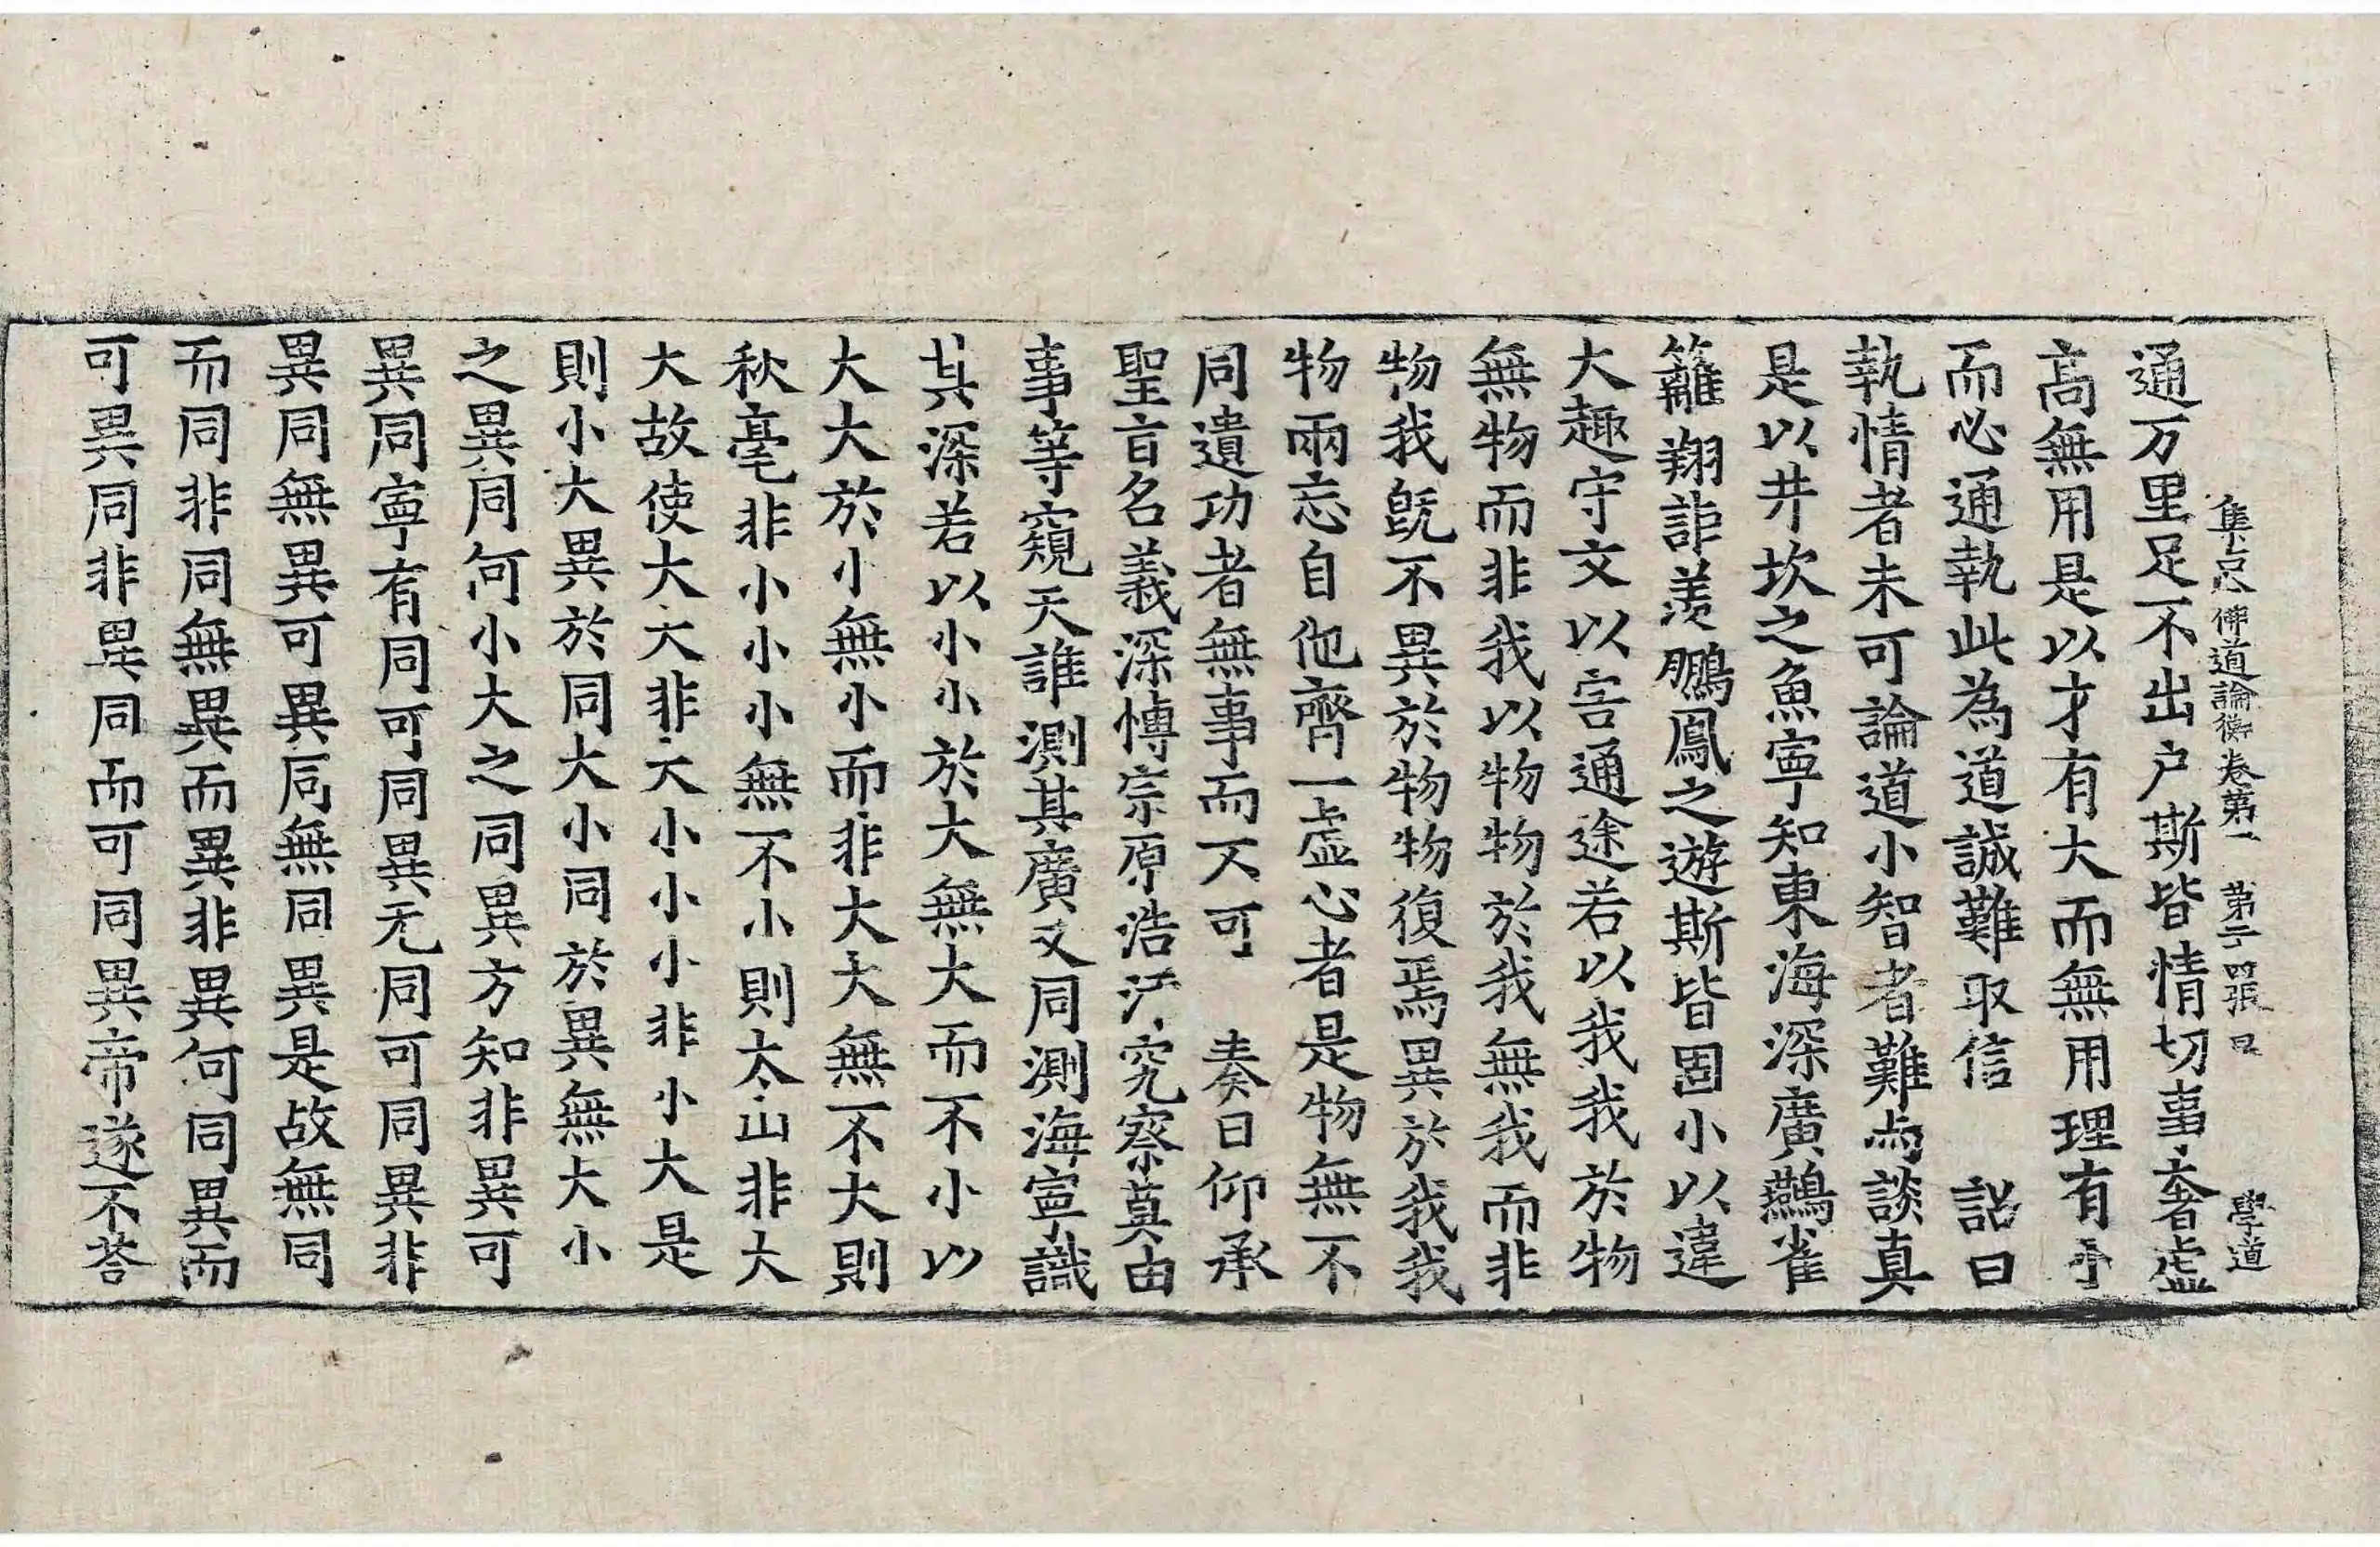 集古今佛道論衡卷第一 第二十四張 㠯 學道
通万里足不出户斯皆情切事奢虚
高無用是以才有大而無用理有小
而必通執此為道誠難取信 詔曰
執情者未可論道小智者難與談真
是以井坎之魚寧知東海深廣鷃雀
籬翔詎羡鵬鳳之遊斯皆固小以違
大趣守文以害通途若以我我於物
無物而非我以物物於我無我而非
物我既不異於物物復焉異於我我
物兩忘自他齊一虚心者是物無不
同遺功者無事而不可 奏曰仰承
聖旨名義深博宗原浩汗究察莫由
事等窺天誰測其廣又同測海寧識
其深若以小小於大無大而不小以
大大於小無小而非大大無不大則
秋毫非小小小無不小則太山非大
大故使大大非大小小小非小大是
則小大異於同大小同於異無大小
之異同何小大之同異方知非異可
異同寧有同可同異无同可同異非
異同無異可異同無同異是故無同
而同非同無異而異非異何同異而
可異同非異同而可同異帝遂不荅